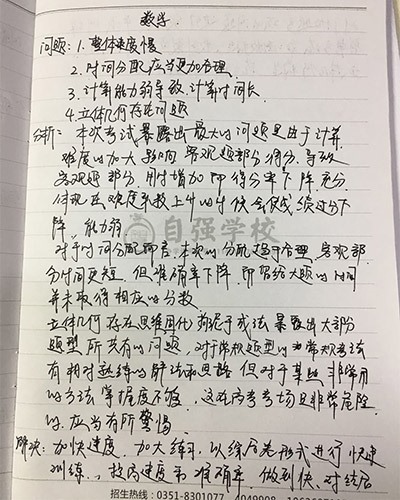 数学.
问题: 1. 整体速度慢
2. 时间分配应当更加合理
3. 计算能力弱导致计算时间长
4. 立体几何存在问题
分析: 本次考试暴露出最大的问题是由于计算
难度的加大影响客观题部分得分. 导致
客观题部分 用时增加即得分率下降. 充分
体现在难度系数上升的时候会使成绩过分下
降, 能力弱
对于时间分配而言. 本次的分配趋于合理. 客观部
分时间更短 但准确率下降. 即留给大题的时间
并未取得相应的分数
立体几何存在思维固化 拘泥于成法暴露出大部分
题型所共有的问题, 对于常规题型的和常规考法
有相对熟练的解法和思路 但对于某些非常用
的方法掌握度不够. 这在高考考场是非常危险
的. 应当有所警惕
解决: 加快速度. 加大练习, 以综合卷形式进行快速
训练, 提高速度和准确率, 做到快、对结合
自强学校
招生热线: 0351-8301077